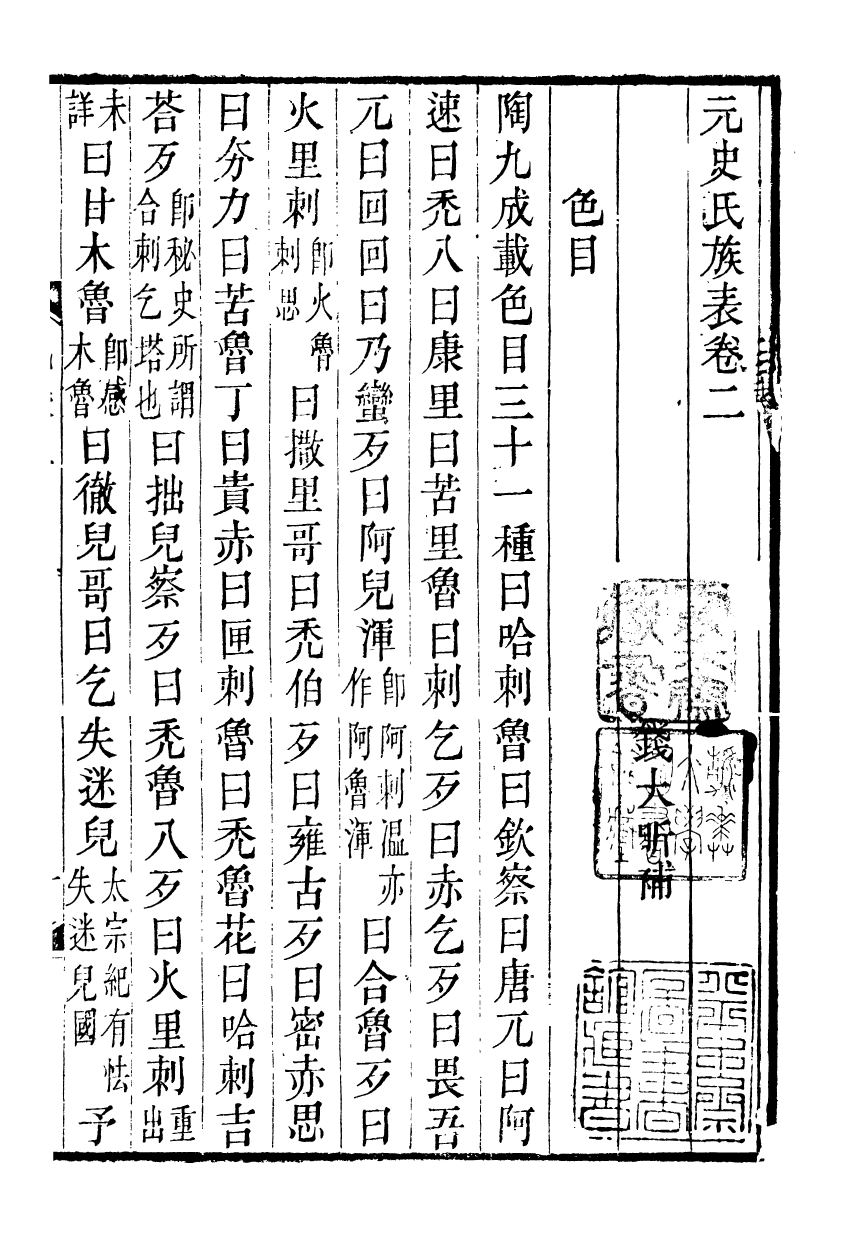 元史氏族表卷二
錢大昕補
色目
陶九成載色目三十一種曰哈刺魯曰欽察曰唐兀曰阿
速曰禿八曰康里曰苦里魯曰刺乞歹曰赤乞歹曰畏吾
兀曰回回曰乃蠻歹曰阿兒渾卽阿刺溫亦作阿魯渾曰合魯歹曰
火里刺卽火魯刺思曰撒里哥曰禿伯歹曰雍古歹曰密赤思
曰夯力曰苦魯丁曰貴赤曰匣刺魯曰禿魯花曰哈刺吉
荅歹卽秘史所謂合刺乞塔也曰拙兒察歹曰禿魯八歹曰火里刺重出
曰甘木魯卽感木魯曰徹兒哥曰乞失迷兒太宗紀有怯失迷兒國予
未詳